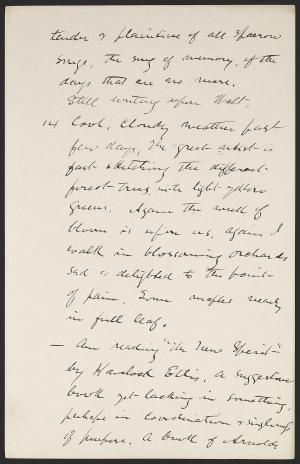 tender & plaintive of all sparrow
songs, the song of memory, of the
days that are no more.
Still writing upon Walt,
14 Cool, cloudy weather past
few days, The great artist is
just sketching the different
forest trees, with light yellow
greens. Again the week of
bloom is upon us, again I
walk in blossoming orchards
sad & delighted to the point
of pain. Some maples nearly
in full leaf.
— Am reading "The New Spirit"
by Havelock Ellis, a suggestive
book yet lacking in something,
perhaps in coordination & singleness
of purpose. A book of Arnolds